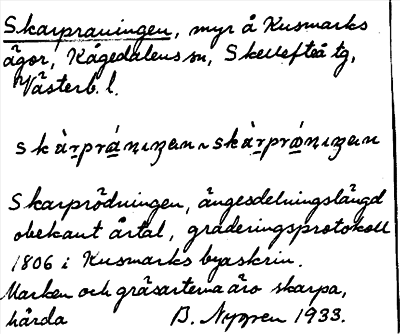 Skarpraningen, myr å Kusmarks
ägor, Kågedalens sn, Skellefteå tg,
Västerb. l.
skàrpránıŋen ~ skàrprónıŋen
Skarprödningen, ängesdelningslängd
obekant årtal, graderingsprotokoll
1806 i Kusmarks byaskrin.
Marken och gräsarterna äro skarpa,
hårda B. Nygren 1933.